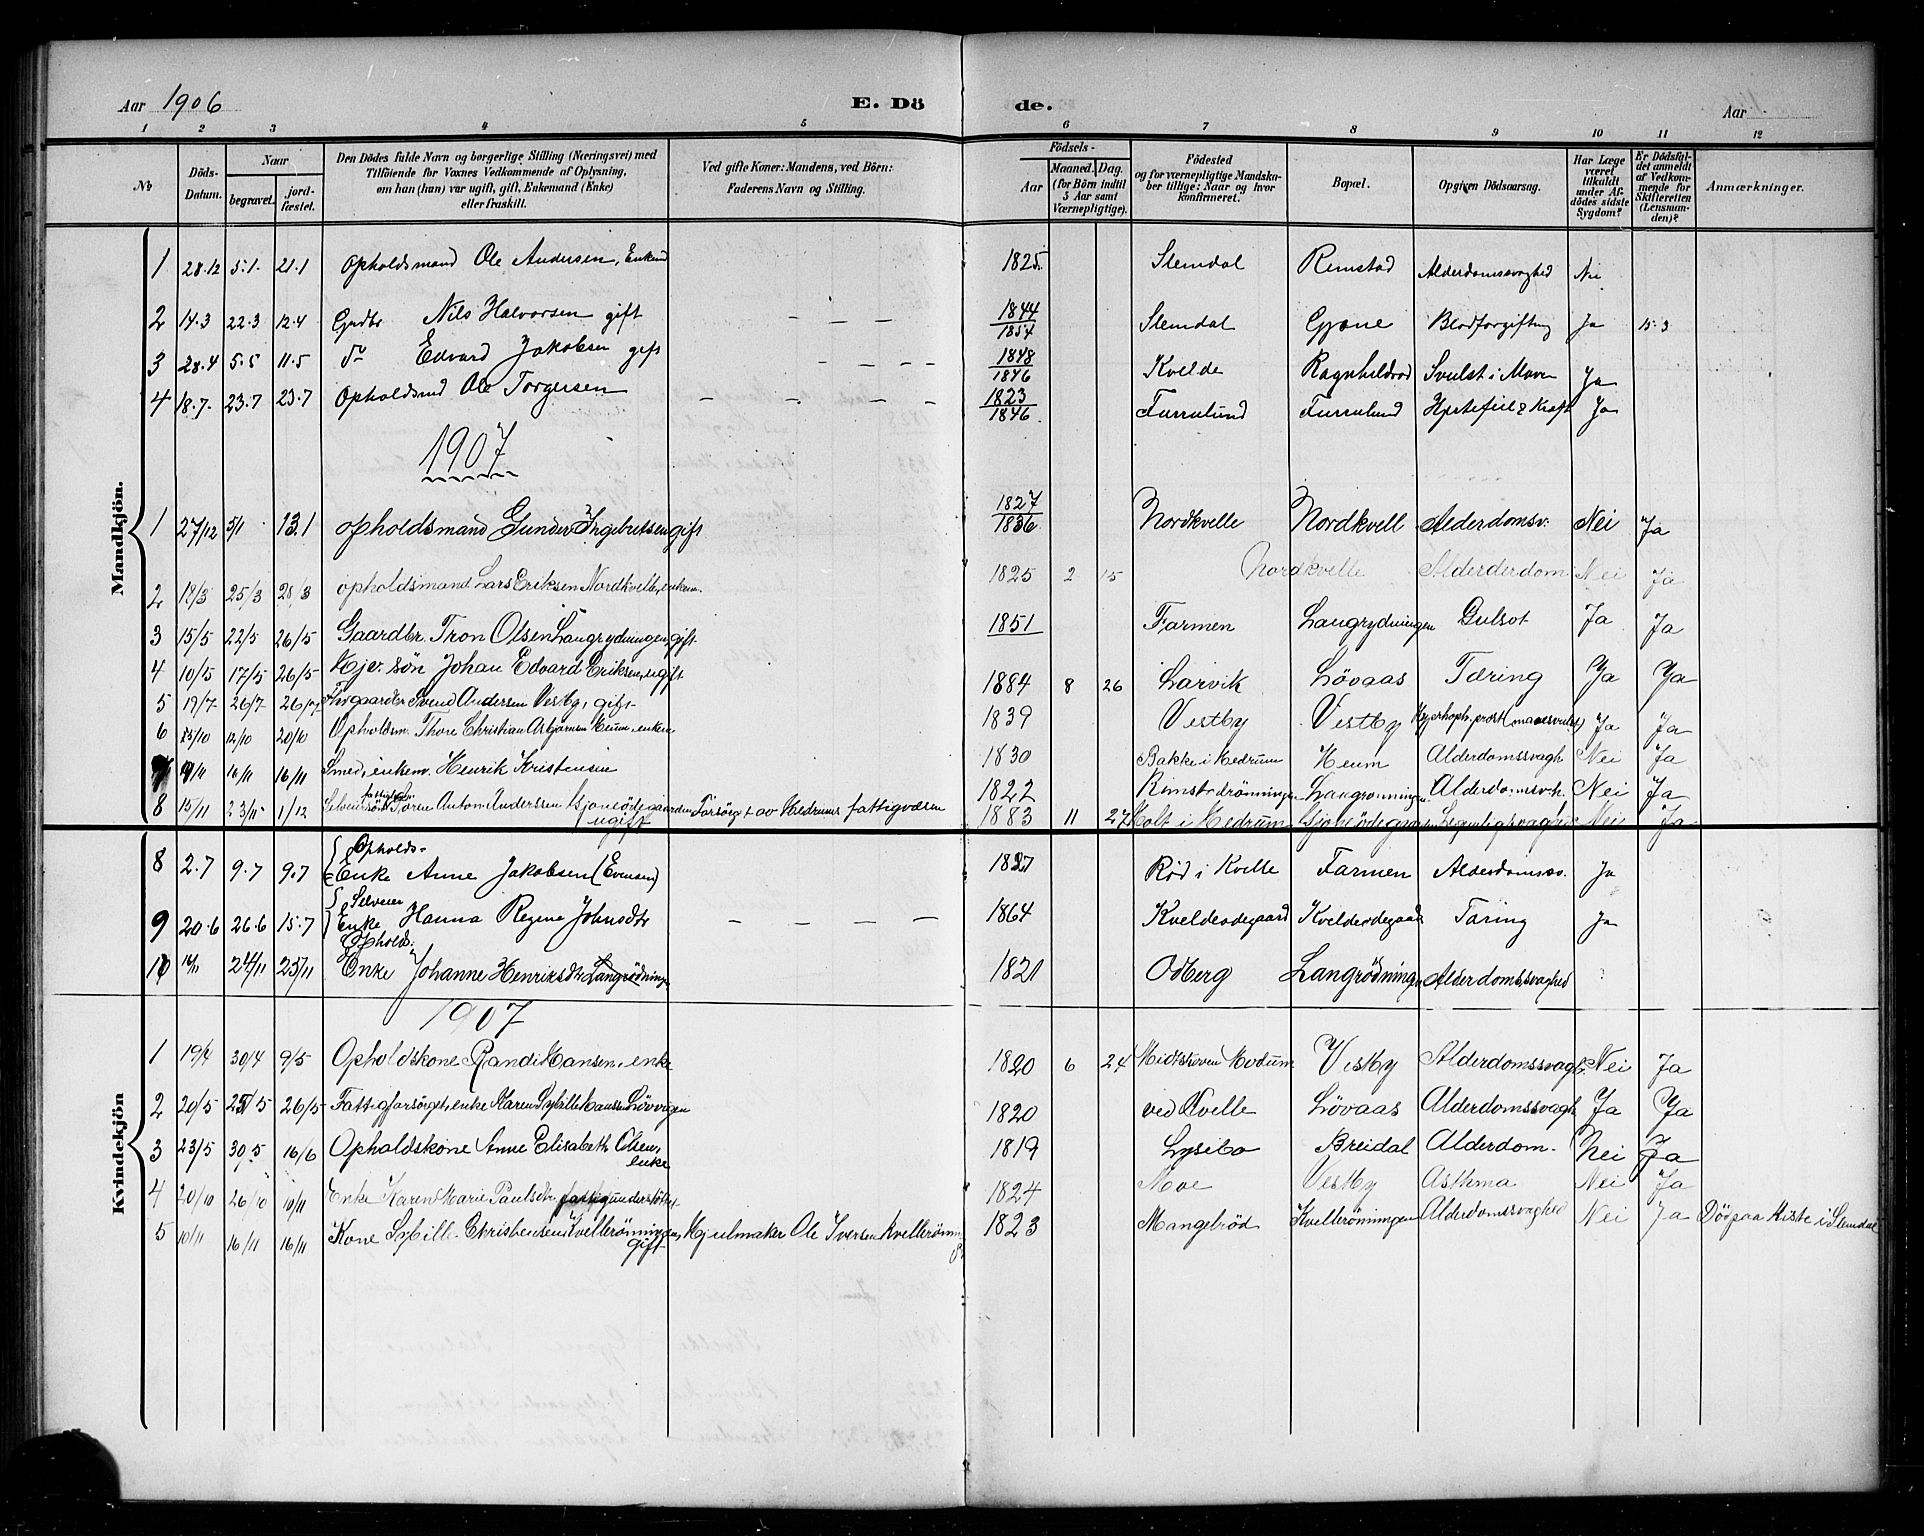 Aar 1906 E. Dö de. Aar
1 2 3 4 5 6 7 8 9 10 11 12
No Döds-Datum. Naar begravet. jord-fæstet. Den Dödes fulde Navn og borgerlige Stilling (Næringsvei) med Tilföiende for Voxnes Vedkommende af Oplysning, om han (hun) var ugift, gift, Enkemand (Enke) eller fraskilt. Ved gifte Koner: Mandens, ved Börn: Faderens Navn og Stilling. Födsels- Aar Maaned. Dag. (for Börn indtil 5 Aar samt Værnepligtige). Födested og for værnepligtige Mandskaber tillige: Naar og hvor konfirmeret. Bopæl. Opgiven Dödsaarsag. Har Læge været tilkaldt under Afdödes sidste Sygdom? Er Dödsfaldet anmeldt af Vedkommende for Skifteretten (Lensmanden)? Anmærkninger.
Mandkjön.
1 28.12 5.1. 21.1 Opholdsmand Ole Andersen, Enkemd 1825 Slemdal Rimstad Alderdomssvaghed Nei
2 14.3 22.3 12.4 Grdbr Nils Halvorsen gift — — — — 1844 1854 Slemdal Gjone Blodforgiftng Ja 15.3
3 28.4 5.5 11.5 do Edvard Jakobsen gift — — — 1848 1846 Kvelde Ragnhildrød Svulst i Maven Ja
4 18.7. 23.7 23.7 Opholdsmd Ole Torgersen — — — — 1823 1846 Furrulund Furrulund Hjertefeil & Kræft Ja
1907
1 27/12 5/1 13.1 opholdsmand Gunder Ingebretsen gift 1827 1836 Nordkvelle Nordkvell Alderdomsv. Nei Ja
2 18/3 25/3 28/3 opholdsmand Lars Eriksen Nordkvelle, enkem. 1825 2 15 Nordkvelle Alderderdom Nei Ja
3 15/5 22/5 26/5 Gaardbr. Tron Olsen Langrydningen, gift 1851 Farmen Langrydningen Gulsot Ja Ja
4 10/5 17/5 26/5 Hjv. sön Johan Edvard Eriksen, ugift 1884 8 26 Larvik Lövaas Tæring Ja Ja
5 19/7 26/7 26/7 Svend Andersen Vestby, gift 1839 Vestby Vestby (mavesvulst) Ja Ja
6 12/10 20/10 Opholdsm. Thore Christian Heum, enkem 1830 Bakke i Hedrum Heum Alderdomssvagh Nei Ja
16/11 16/11 Smed, enkem. Henrik Kristensen 1822 Rimstadrønningen Langrönningen Alderdomsvh. Nei Ja
8 15/11 23/11 1/12 Selveiersön fattiglem Sören Anton Anderssen Gjoneödegaarden ugift Forsörget av Hedrums fattigvæsen 1883 11 27 Holt i Hedrum Gjoneödegaarden Nei Ja
Kvindekjön
8 2.7 9.7 9.7 Opholds- Enke Anne Jakobsen (Evensen) 1827 Röd i Kvelle Farmen Alderdomssv. Ja
9 20.6 26.6 15.7 Selveier Enke Hanna Regine Johnsdtr — — — — 1864 Kveldeodegaard Kveldeodegaard Tæring Ja
10 14/11 24/11 25/11 Opholds- Enke Johanne Henriksdtr Langrödningen 1821 Odberg Langrödningen Alderdomssvaghed
1907
1 19/4 30/4 9/5 Opholdskone Randi Hansen, enke 1820 6 24 Modum Vestby Alderdomssvagh. Nei Ja
2 20/5 25/5 26/5 Fattigforsörget, enke Karen Sybille Hansen Lövvigen 1820 ved Kvelle Lövaas Alderdomssvagh. Ja Ja
3 23/5 30/5 16/6 Opholdskone Anne Elisabeth Olsen, enke 1819 Lysebo Breidal Alderdom. Nei Ja
4 20/10 26/10 10/11 Enke Karen Marie Paulsdtr. fattigunderstöttet 1824 Moe Vestby Asthma Nei Ja
5 10/11 16/11 16/11 Kone Sybille Christensen Kvellerönningen, gift Hjulmaker Ole Iversen Kvellerönn. 1823 Mangelröd Kvellerönningen Alderdomssvaghed Nei Ja Död paa Kiste i Slemdal